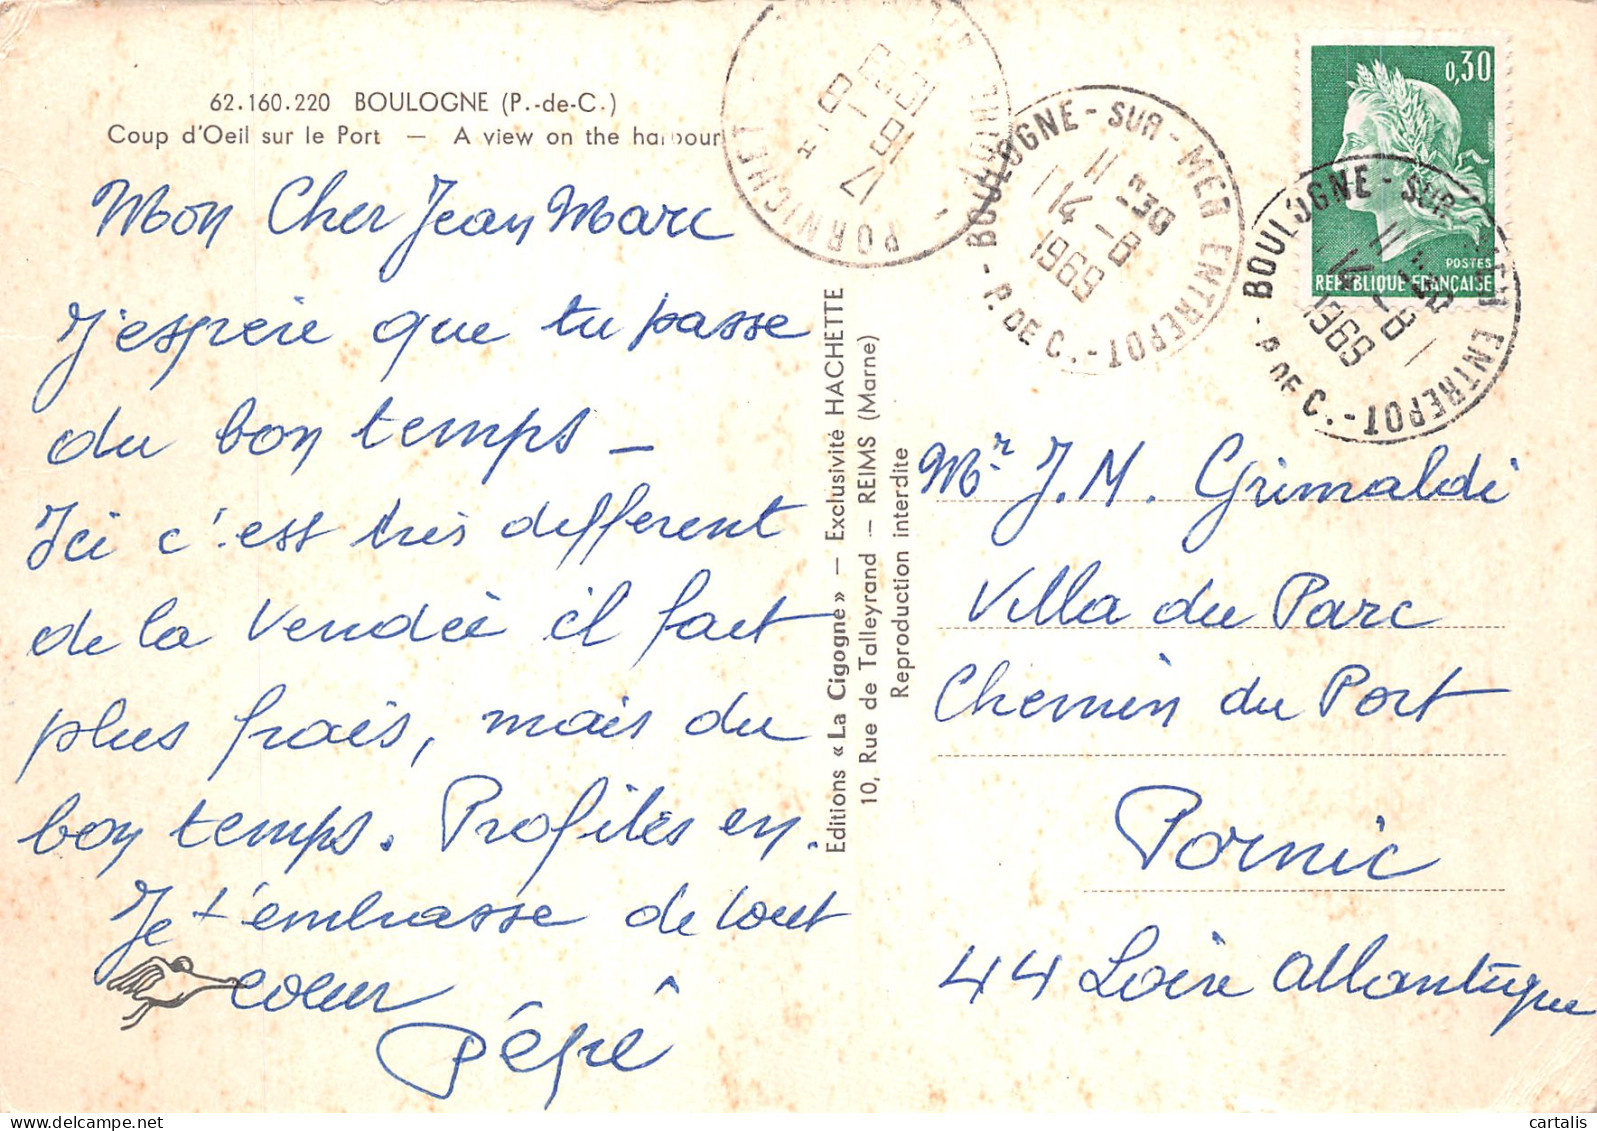 62.160.220 BOULOGNE (P.-de-C.)
Coup d'Oeil sur le Port — A view on the harbour
Mon Cher Jean Marc
J'espère que tu passe
du bon temps —
Ici c'est très different
de la Vendée il fait
plus frais, mais du
bon temps. Profites en.
Je t'embrasse de tout
coeur
Pépé
Editions « La Cigogne » — Exclusivité HACHETTE
10, Rue de Talleyrand — REIMS (Marne)
Reproduction interdite
PORNICHET
17 18 - 8
1969
BOULOGNE - SUR - MER ENTREPOT - P. DE C.
11 H 30
14 - 8
1969
0,30
POSTES
REPUBLIQUE FRANÇAISE
BOULOGNE - SUR - MER ENTREPOT - P. DE C.
11 H 30
14 - 8
1969
Mr J.M. Grimaldi
Villa du Parc
Chemin du Port
Pornic
44 Loire Atlantique
cartalis